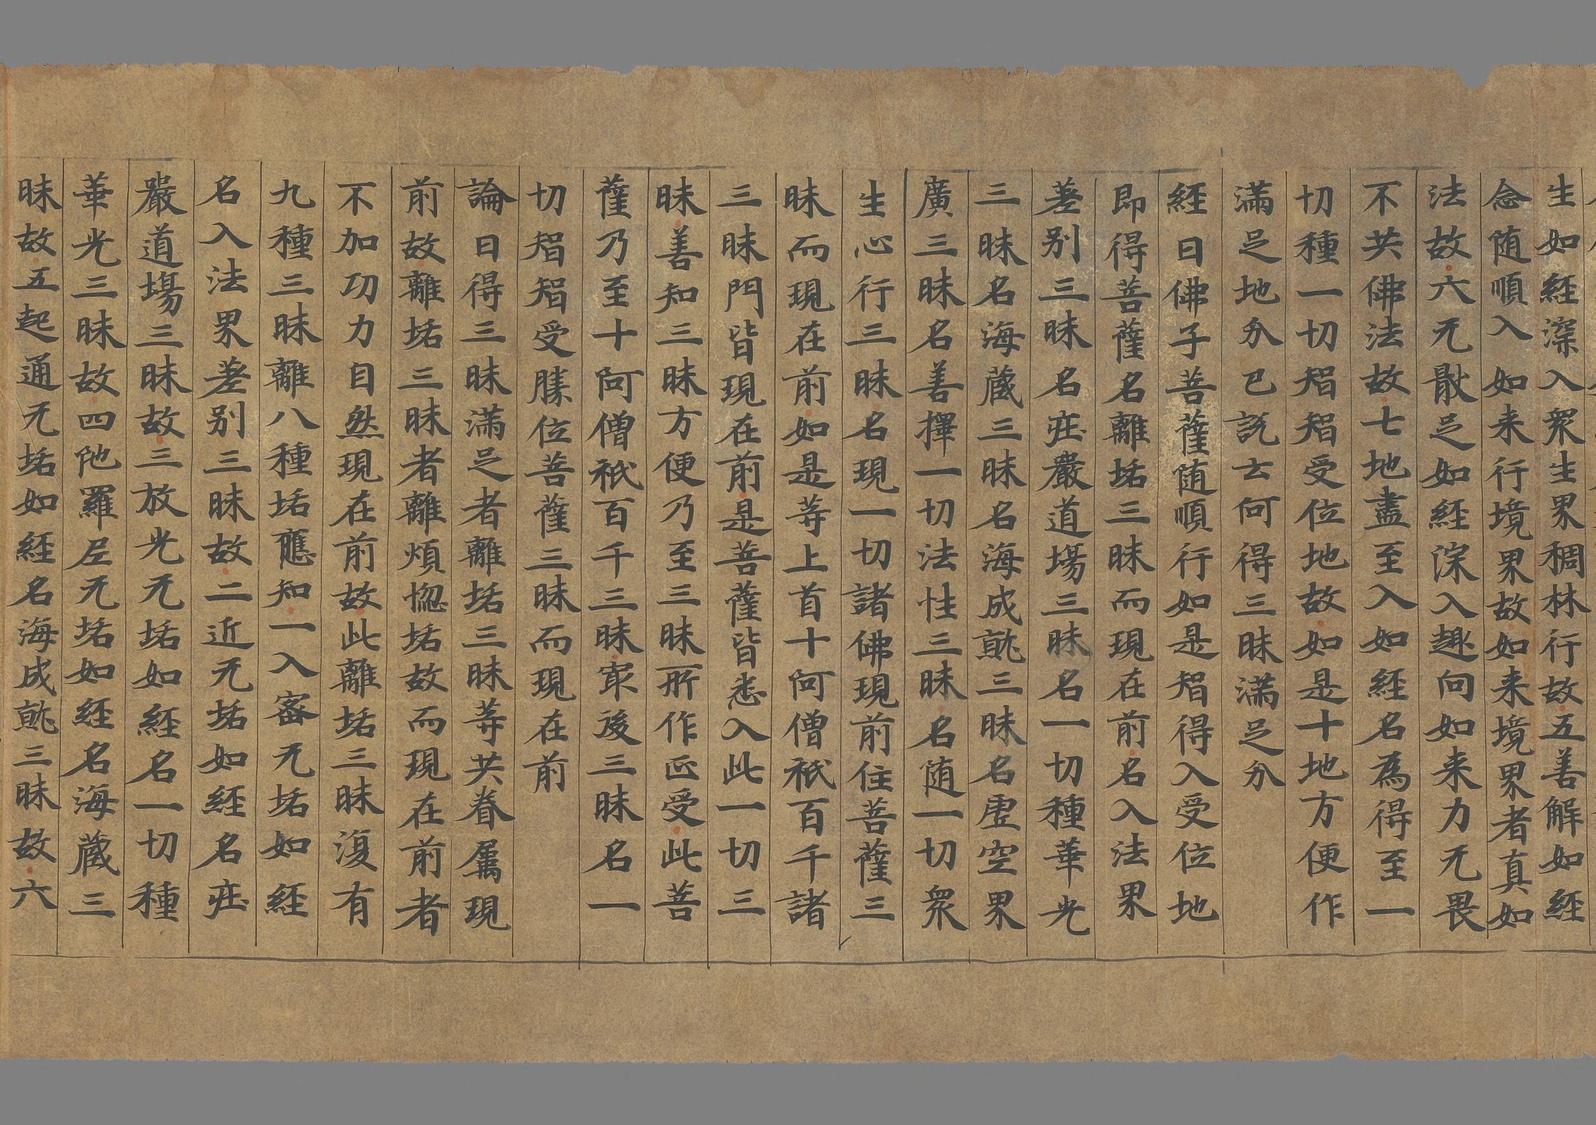 生如經深入衆生界稠林行故五善解如經
念随順入如来行境界故如来境界者真如
法故六无猒足如經深入趣向如来力无畏
不共佛法故七地盡至入如經名為得至一
切種一切智智受位地故如是十地方便作
滿足地分已說云何得三昧滿足分
經曰佛子菩薩随順行如是智得入受位地
即得菩薩名離垢三昧而現在前名入法界
差别三昧名莊嚴道場三昧名一切種華光
三昧名海藏三昧名海成就三昧名虛空界
廣三昧名善擇一切法性三昧名随一切衆
生心行三昧名現一切諸佛現前住菩薩三
昧而現在前如是等上首十阿僧祇百千諸
三昧門皆現在前是菩薩皆悉入此一切三
昧善知三昧方便乃至三昧所作正受此菩
薩乃至十阿僧祇百千三昧寂後三昧名一
切智智受勝位菩薩三昧而現在前
論曰得三昧滿足者離垢三昧等共眷屬現
前故離垢三昧者離煩惱垢故而現在前者
不加功力自然現在前故此離垢三昧復有
九種三昧離八種垢應知一入密无垢如經
名入法界差别三昧故二近无垢如經名莊
嚴道場三昧故三放光无垢如經名一切種
華光三昧故四陁羅尼无垢如經名海藏三
昧故五起通无垢如經名海成就三昧故六